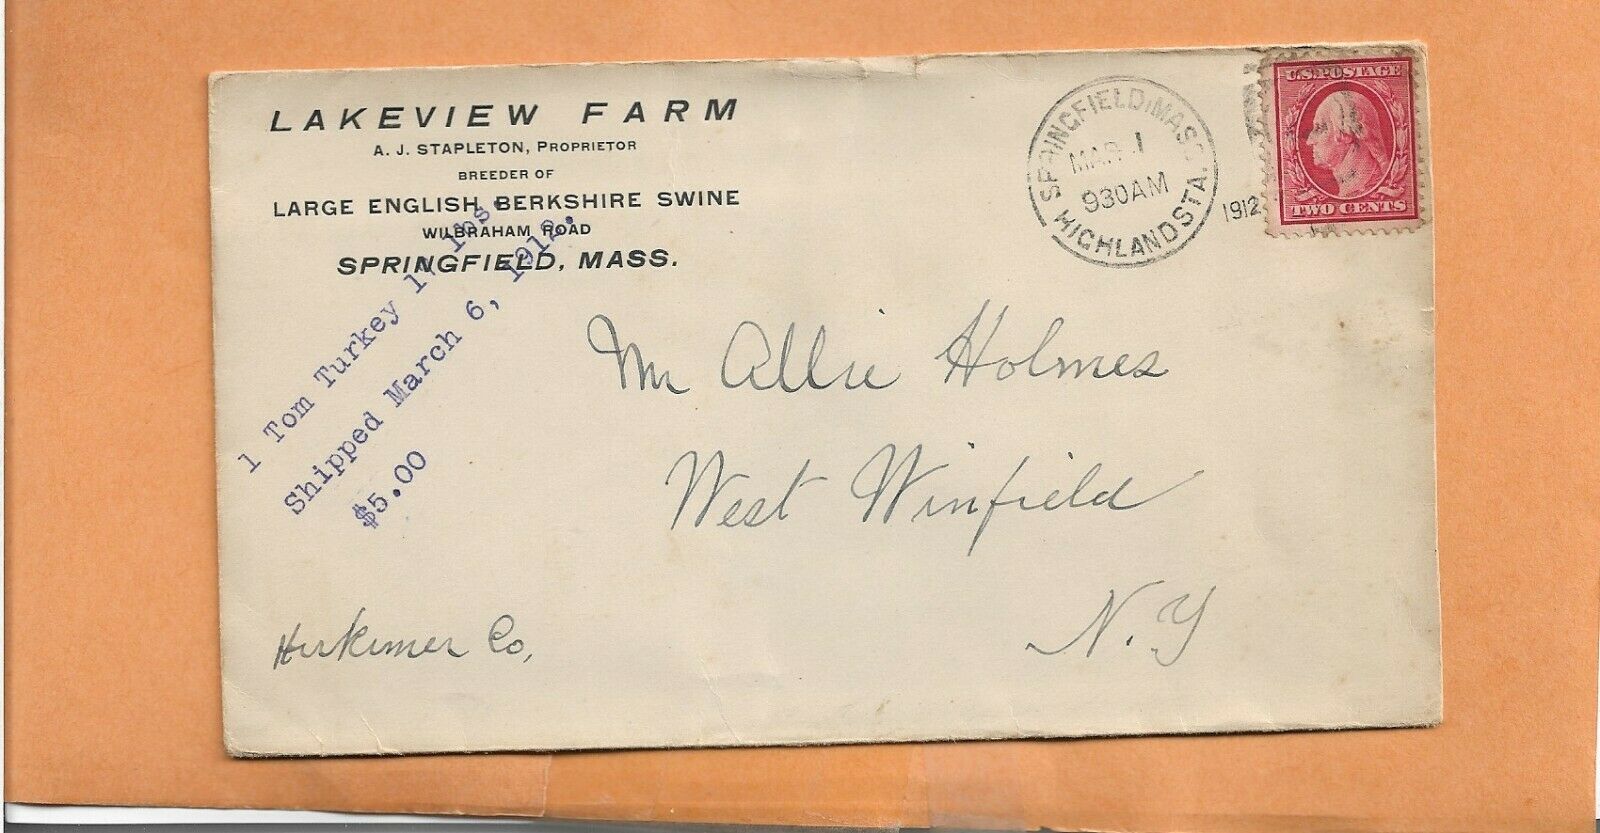 LAKEVIEW FARM
A. J. STAPLETON, PROPRIETOR
BREEDER OF
LARGE ENGLISH BERKSHIRE SWINE
WILBRAHAM ROAD
SPRINGFIELD, MASS.
1 Tom Turkey lbs.
Shipped March 6, 1912.
$5.00
SPRINGFIELD, MASS.
MAR 1
930AM
HIGHLAND STA.
1912
U.S. POSTAGE
TWO CENTS
Mr Allie Holmes
West Winfield
N.Y
Herkimer Co,